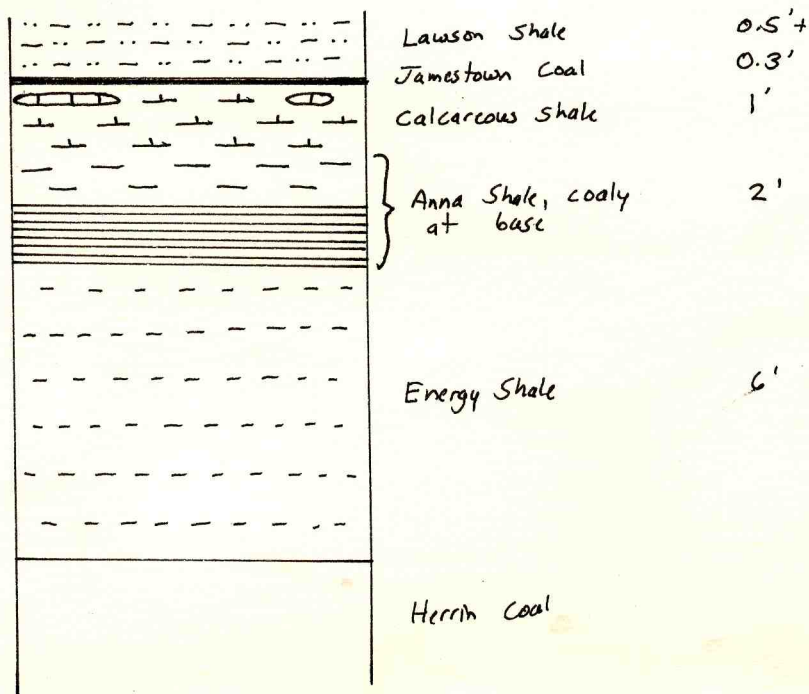 Lawson Shale 0.5'+
Jamestown Coal 0.3'
Calcareous Shale 1'
Anna Shale, coaly 2'
at base
Energy Shale 6'
Herrin Coal